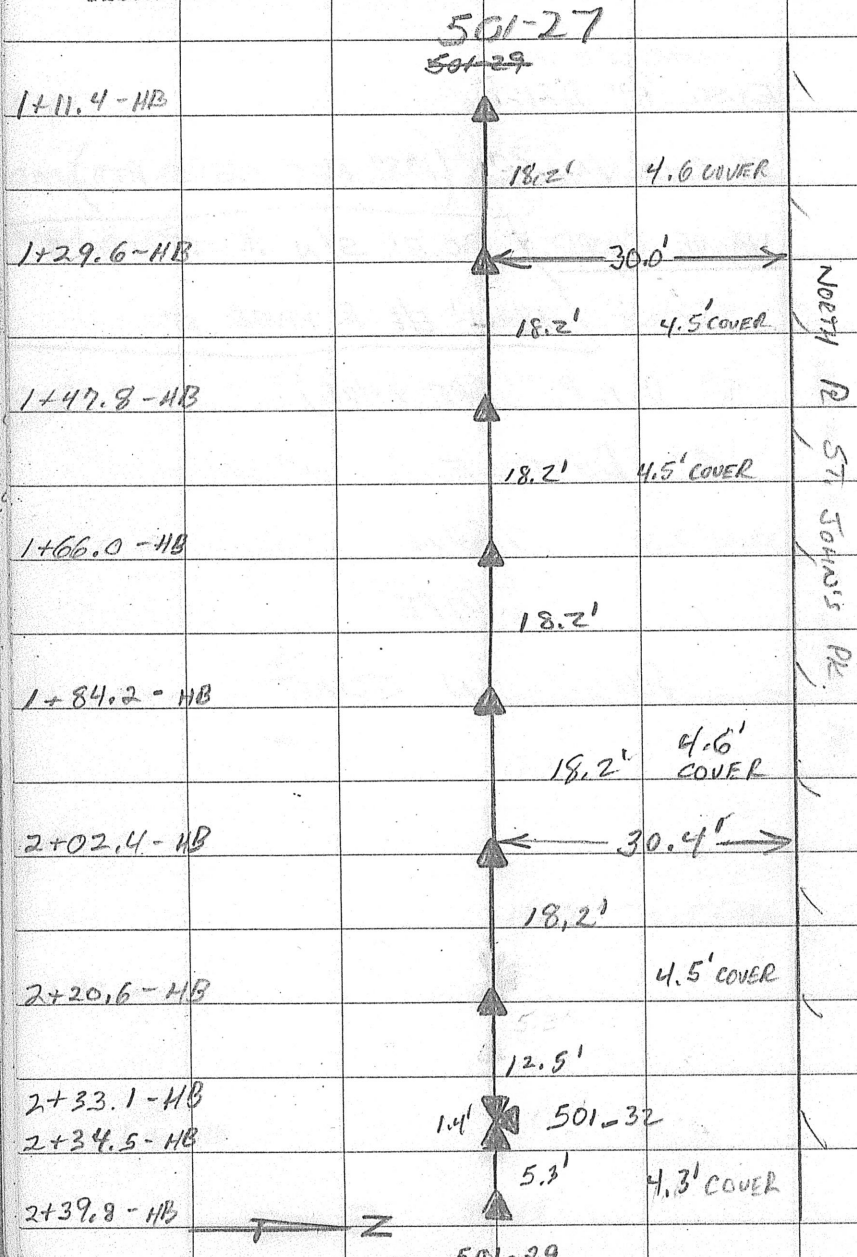 501-27
501-29
1+11.4-HB
18.2' 4.6 COVER
1+29.6-HB 30.0'
18.2' 4.5' COVER
1+47.8-HB
18.2' 4.5' COVER
1+66.0-HB
18.2'
1+84.2-HB
18.2' 4.6' COVER
2+02.4-HB 30.4'
18.2'
2+20.6-HB 4.5' COVER
12.5'
2+33.1-HB
1.4' 501-32
2+34.5-HB
5.3' 4.3' COVER
2+39.8-HB
N
501-29
NORTH ST. JOHN'S PK.